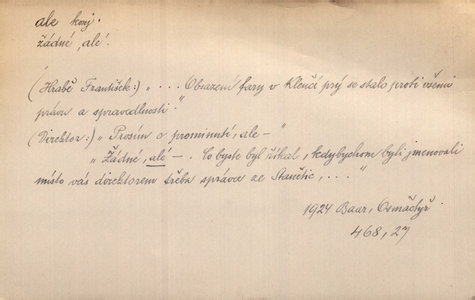 ale konj.
žádné „ale“.
(Hrabě František:) „... Obsazení fary v Klenčí prý se stalo proti všemu
právu a spravedlnosti.“
(Direktor:) „Prosím o prominutí, ale —“
„Žádné „ale“ —. Co byste byl říkal, kdybychom byli jmenovali
místo vás direktorem třeba správce ze Stanětic, ...“
1924 Baar, Osmačtyř
468, 27